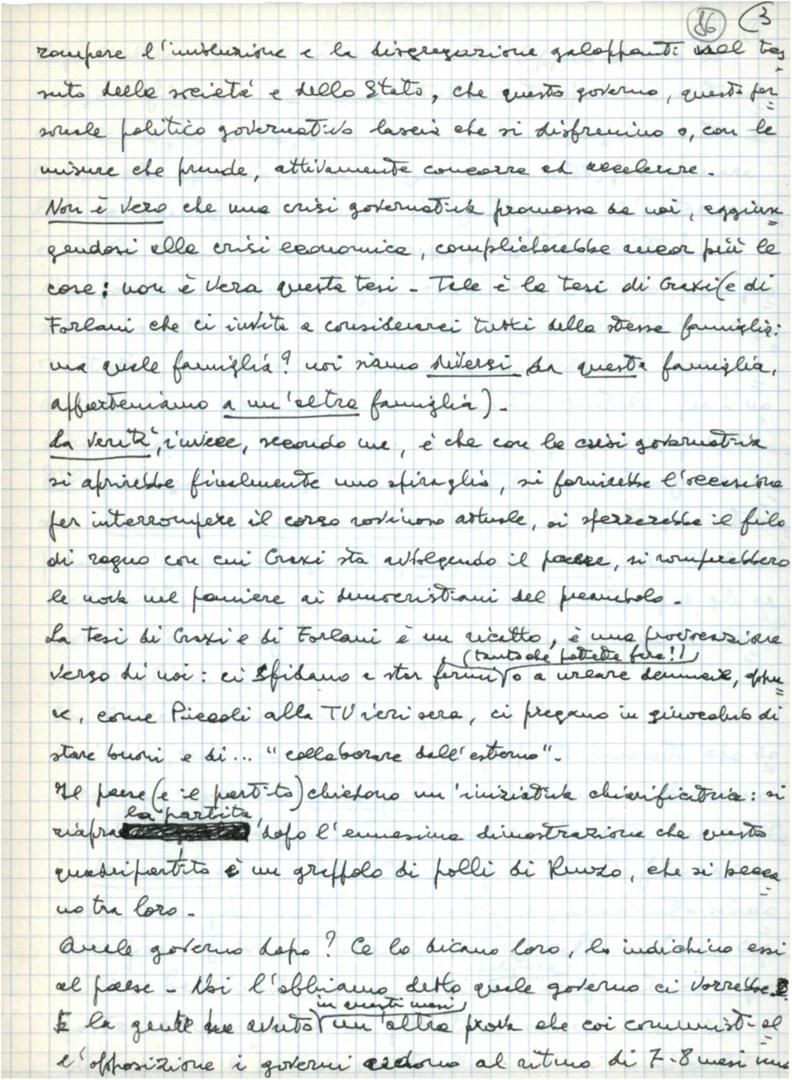 86 3
rompere l'involuzione e la disgregazione galoppanti nel tes
suto della società e dello Stato, che questo governo, questo per
sonale politico governativo lascia che si disfrenino o, con le
misure che prende, attivamente concorre ad accelerare.
Non è vero che una crisi governativa promossa da noi, aggiun
gendosi alla crisi economica, complicherebbe ancor più le
cose: non è vera questa tesi - Tale è la tesi di Craxi (e di
Forlani che ci invita a considerarci tutti della stessa famiglia:
ma quale famiglia? noi siamo diversi da questa famiglia,
apparteniamo a un'altra famiglia).
La verità, invece, secondo me, è che con la crisi governativa
si aprirebbe finalmente uno spiraglio, si fornirebbe l'occasione
per interrompere il corso rovinoso attuale, si spezzerebbe il filo
di ragno con cui Craxi sta avvolgendo il paese, si romperebbero
le uova nel paniere ai democristiani del preambolo.
La tesi di Craxi e di Forlani è un ricatto, è una provocazione
(tanto che potete fare!)
verso di noi: ci sfidano a star fermi o a urlare , oppu
re, come Piccoli alla TV ieri sera, ci pregano in ginocchio di
stare buoni e di... "collaborare dall'esterno".
Il paese (e il partito) chiedono un'iniziativa chiarificatrice: si
la partita,
riapra dopo l'ennesima dimostrazione che questo
quadripartito è un groppolo di polli di Renzo, che si becca
no tra loro -
Quale governo dopo? Ce lo dicano loro, lo indichino essi
al paese - Noi l'abbiamo detto quale governo ci vorrebbe.
in questi mesi
E la gente ha avuto un'altra prova che coi comunisti al
l'opposizione i governi cadono al ritmo di 7-8 mesi uno